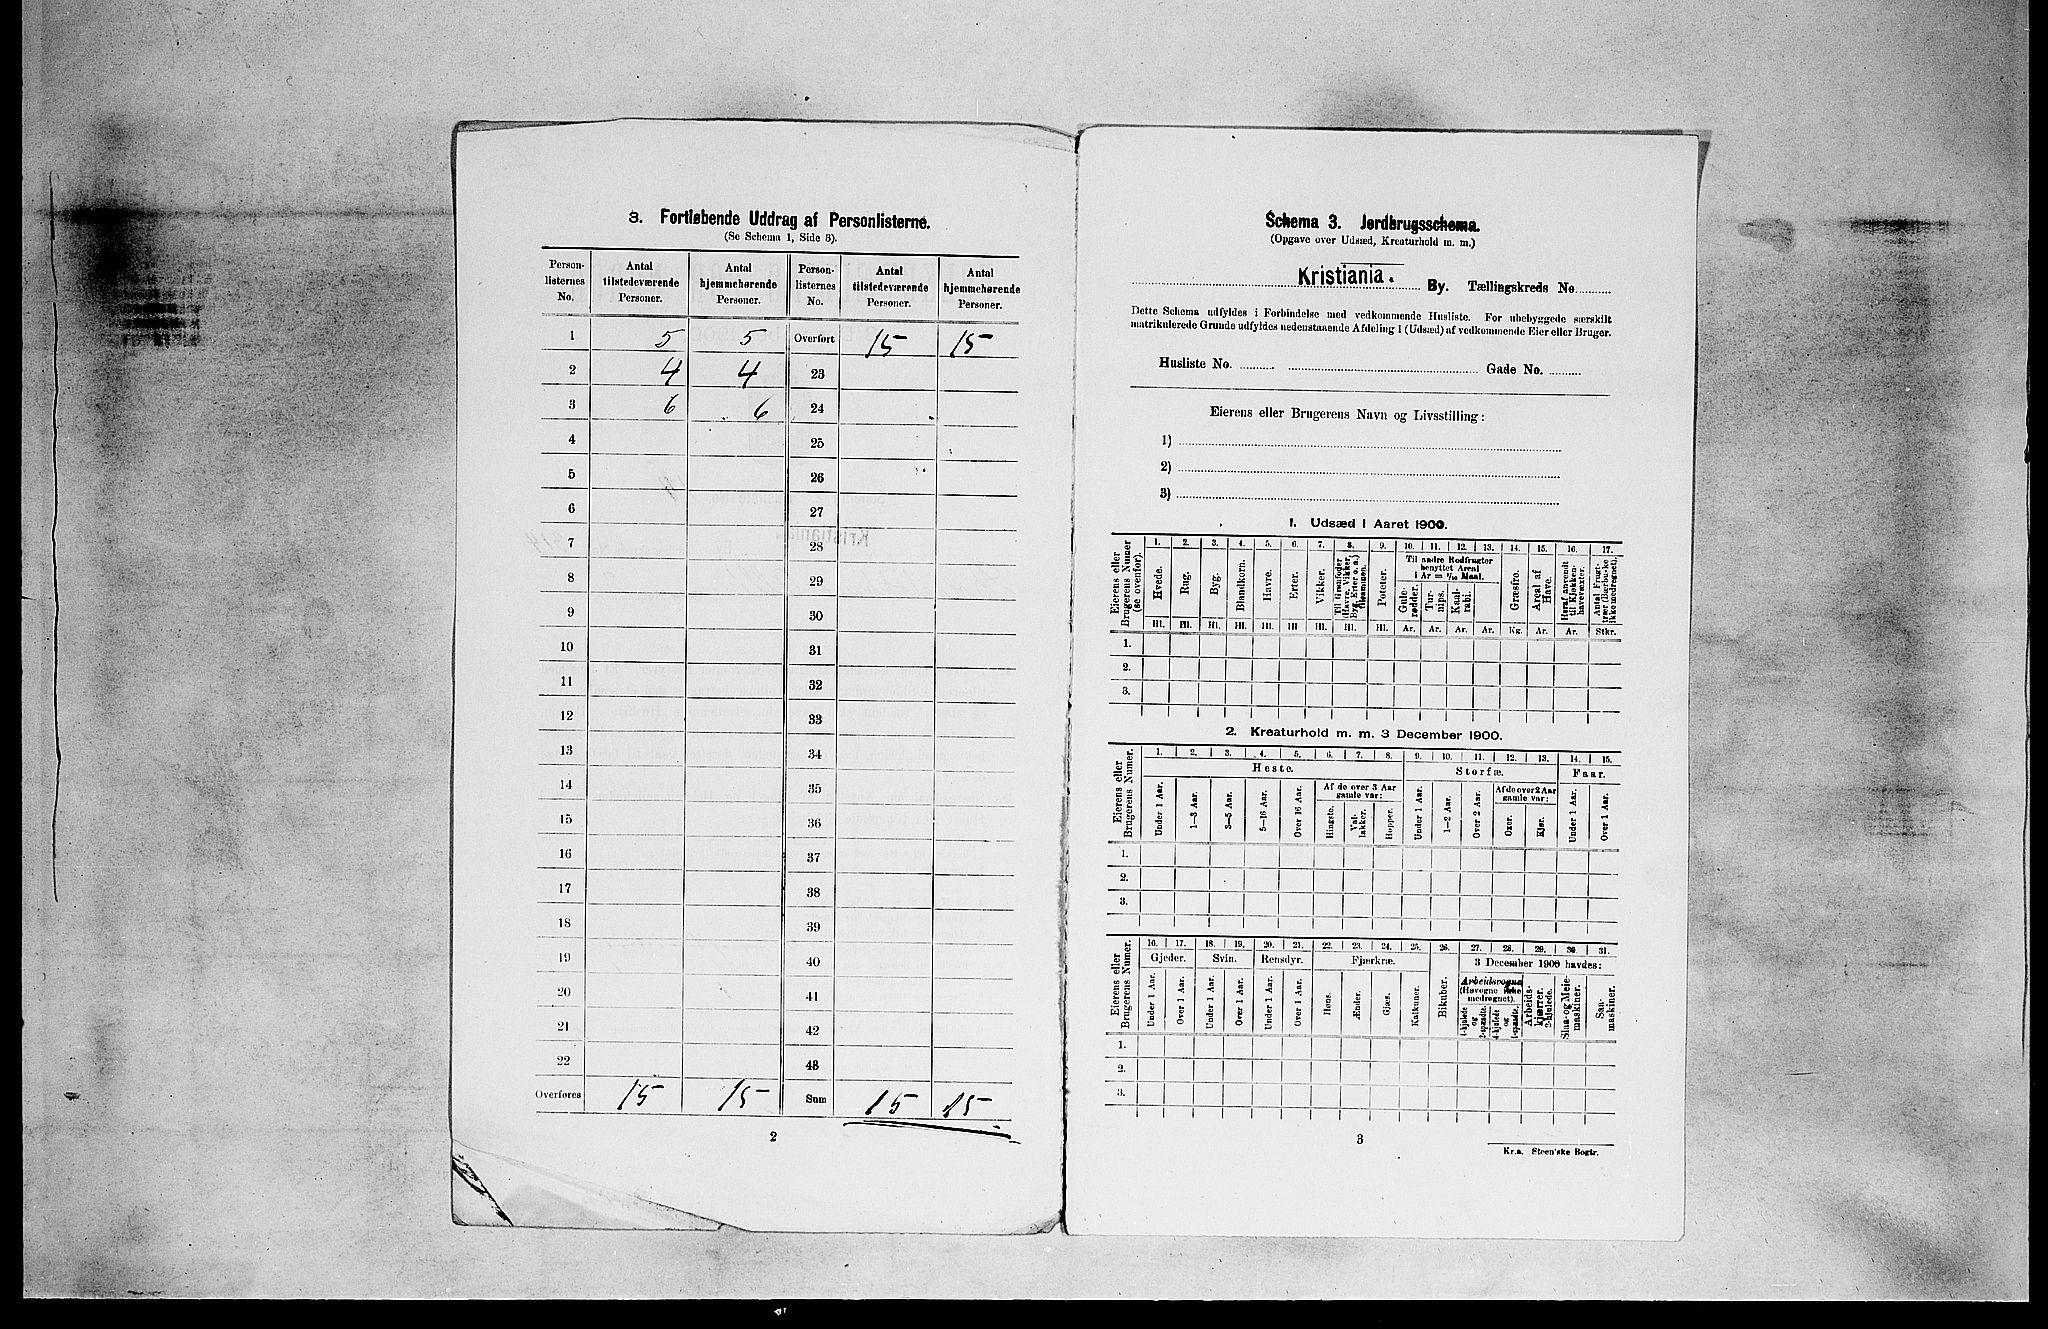 3. Fortløbende Uddrag af Personlisterne.
(Se Schema 1, Side 3).
Person-listernes No. Antal tilstedeværende Personer. Antal hjemmehørende Personer. Person-listernes No. Antal tilstedeværende Personer. Antal hjemmehørende Personer.
1 5 5 Overført 15 15
2 4 4 23
3 6 6 24
4 25
5 26
6 27
7 28
8 29
9 30
10 31
11 32
12 33
13 34
14 35
15 36
16 37
17 38
18 39
19 40
20 41
21 42
22 43
Overføres 15 15 Sum 15 15
2
Schema 3. Jordbrugsschema.
(Opgave over Udsæd, Kreaturhold m. m.)
Kristiania. By. Tællingskreds No.
Dette Schema udfyldes i Forbindelse med vedkommende Husliste. For ubebyggede særskilt
matrikulerede Grunde udfyldes nedenstaaende Afdeling 1 (Udsæd) af vedkommende Eier eller Bruger.
Husliste No. Gade No.
Eierens eller Brugerens Navn og Livsstilling:
1)
2)
3)
1. Udsæd i Aaret 1900.
Eierens eller Brugerens Numer (se ovenfor).
1. 2. 3. 4. 5. 6. 7. 8. 9. 10. 11. 12. 13. 14. 15. 16. 17.
Hvede. Rug. Byg. Blandkorn. Havre. Erter. Vikker. Til Grønfoder (Havre, Vikker, Byg, Erter o. a.) tilsammen. Poteter. Til andre Rodfrugter benyttet Areal i Ar = 1/10 Maal. Gule-rødder. Tur-nips. Kaal-rabi. Græsfrø. Areal af Have. Heraf anvendt til Kjøkken-havevæxter. Antal Frugt-træer (Bærbuske ikke medregnet).
Hl. Hl. Hl. Hl. Hl. Hl. Hl. Hl. Hl. Ar. Ar. Ar. Ar. Kg. Ar. Ar. Stkr.
1.
2.
3.
2. Kreaturhold m. m. 3 December 1900.
Eierens eller Brugerens Numer.
1. 2. 3. 4. 5. 6. 7. 8. 9. 10. 11. 12. 13. 14. 15.
Heste. Storfæ. Faar.
Under 1 Aar. 1—3 Aar. 3—5 Aar. 5—16 Aar. Over 16 Aar. Af de over 3 Aar gamle var: Hingste. Val-lakker. Hopper. Under 1 Aar. 1—2 Aar. Over 2 Aar. Af de over 2 Aar gamle var: Oxer. Kjør. Under 1 Aar. Over 1 Aar.
1.
2.
3.
Eierens eller Brugerens Numer.
16. 17. 18. 19. 20. 21. 22. 23. 24. 25. 26. 27. 28. 29. 30. 31.
Gjeder. Svin. Rensdyr. Fjærkræ. Bikuber. 3 December 1900 havdes:
Under 1 Aar. Over 1 Aar. Under 1 Aar. Over 1 Aar. Under 1 Aar. Over 1 Aar. Høns. Ænder. Gjæs. Kalkuner. Arbeidsvogne (Høvogne ikke medregnet). 4-hjulede og 2-spændte. 4-hjulede og 1-spændte. Arbeids-kjærrer. 2-hjulede. Slaa- og Meie-maskiner. Saa-maskiner.
1.
2.
3.
3
Kr.a. Steen'ske Bogtr.